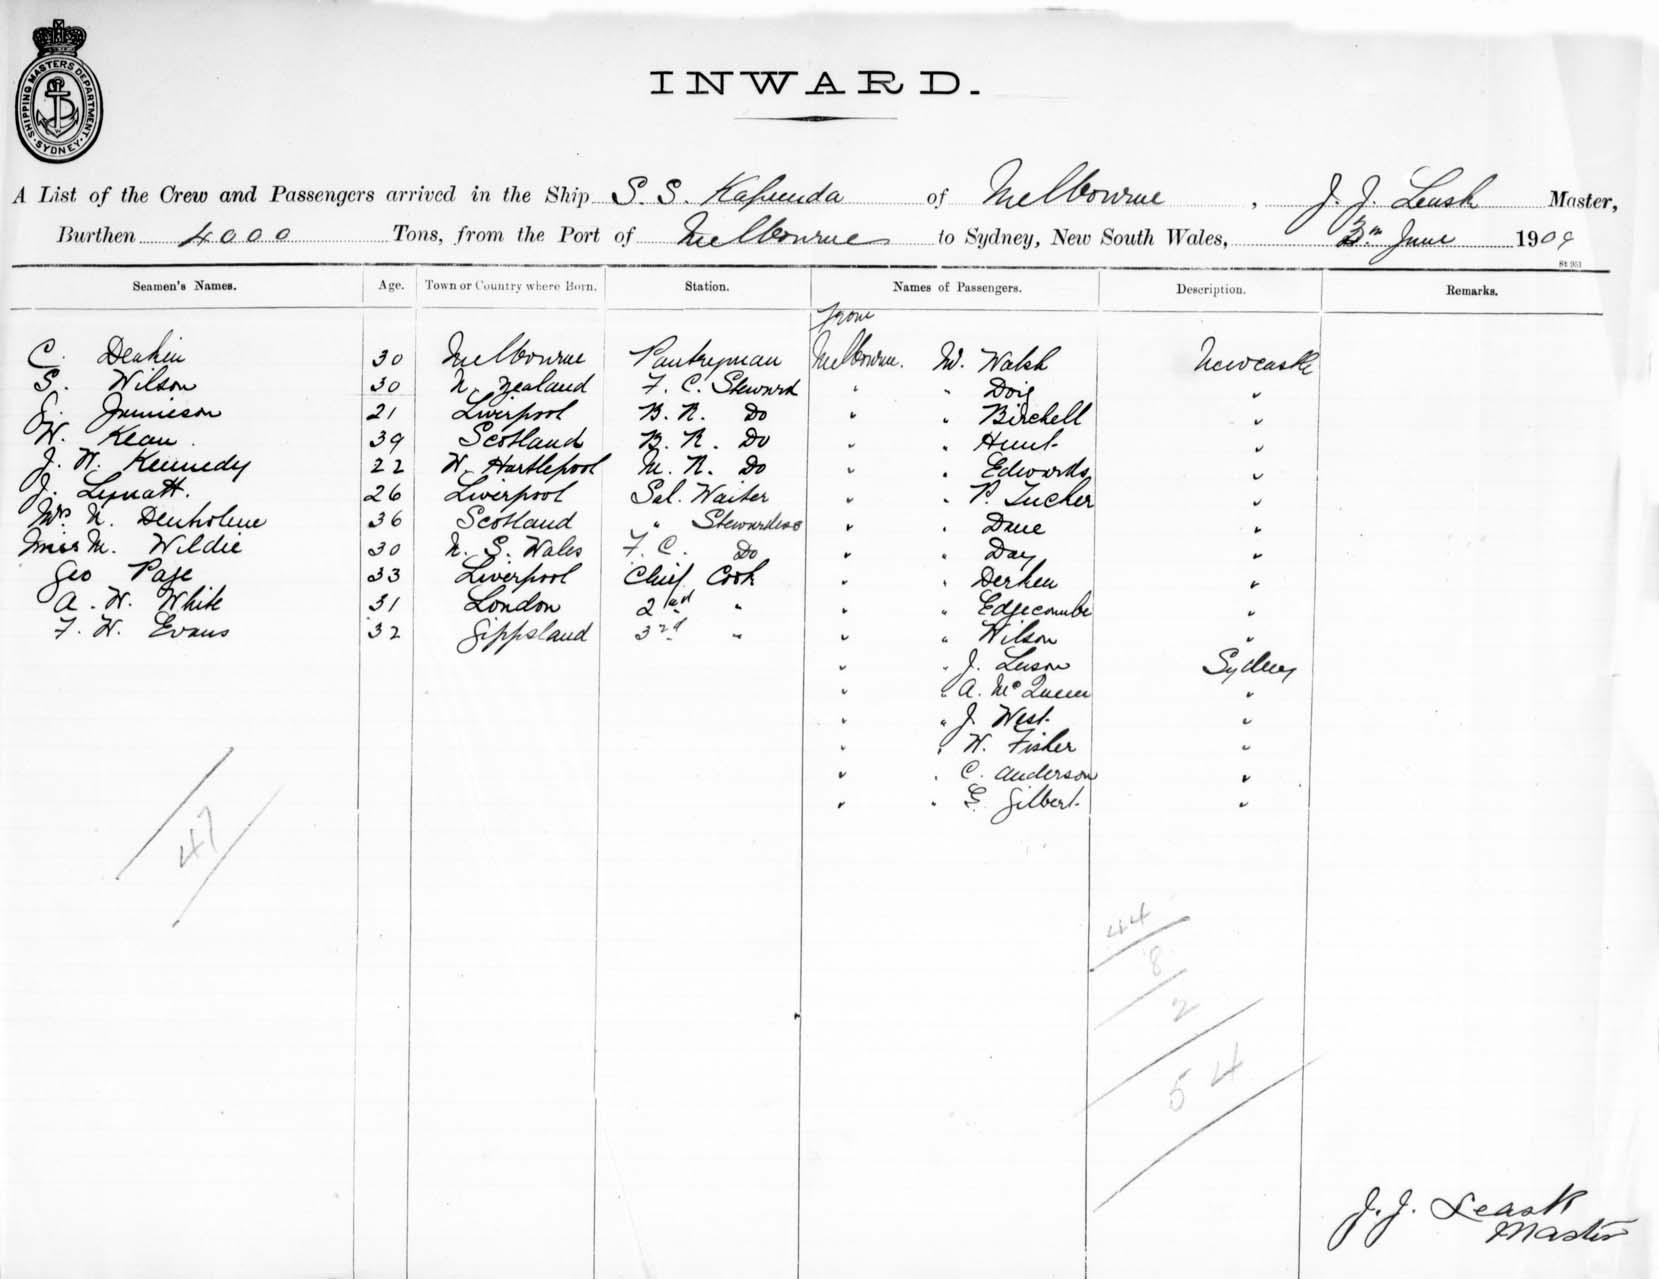 SHIPPING MASTERS DEPARTMENT. SYDNEY.
INWARD.
A List of the Crew and Passengers arrived in the Ship S.S. Kapunda of Melbourne, J. J. Leask Master,
Burthen 4000 Tons, from the Port of Melbourne to Sydney, New South Wales, June 1909
St 951
Seamen's Names. Age. Town or Country where Born. Station. Names of Passengers. Description. Remarks.
from
C. Deakin 30 Melbourne Pantryman Melbourne. M. Walsh Newcastle
S. Wilson 30 N. Zealand F. C. Steward " " Doig "
G. Jamieson 21 Liverpool B. R. Do " " Birchell "
W. Kean. 39 Scotland B. R. Do " " Hunt "
J. W. Kennedy 22 W. Hartlepool M. R. Do " " Edwards "
J. 26 Liverpool Sal. Waiter " " P. Tucker "
Mrs N. Denholme 36 Scotland " Stewardess " " Dane "
Miss M. Wildie 30 N. S. Wales F. C. Do " " Day "
Geo Page 33 Liverpool Chief Cook " " "
A. W. White 31 London 2nd " " " Edgecombe "
F. W. Evans 32 Gippsland 3rd " " " Wilson "
" " J. Sydney
" " A. McQueen "
" " J. West "
" " W. Fisher "
" " C. Anderson "
" " G. Gilbert "
47
44
8
2
54
J. J. Leask
Master